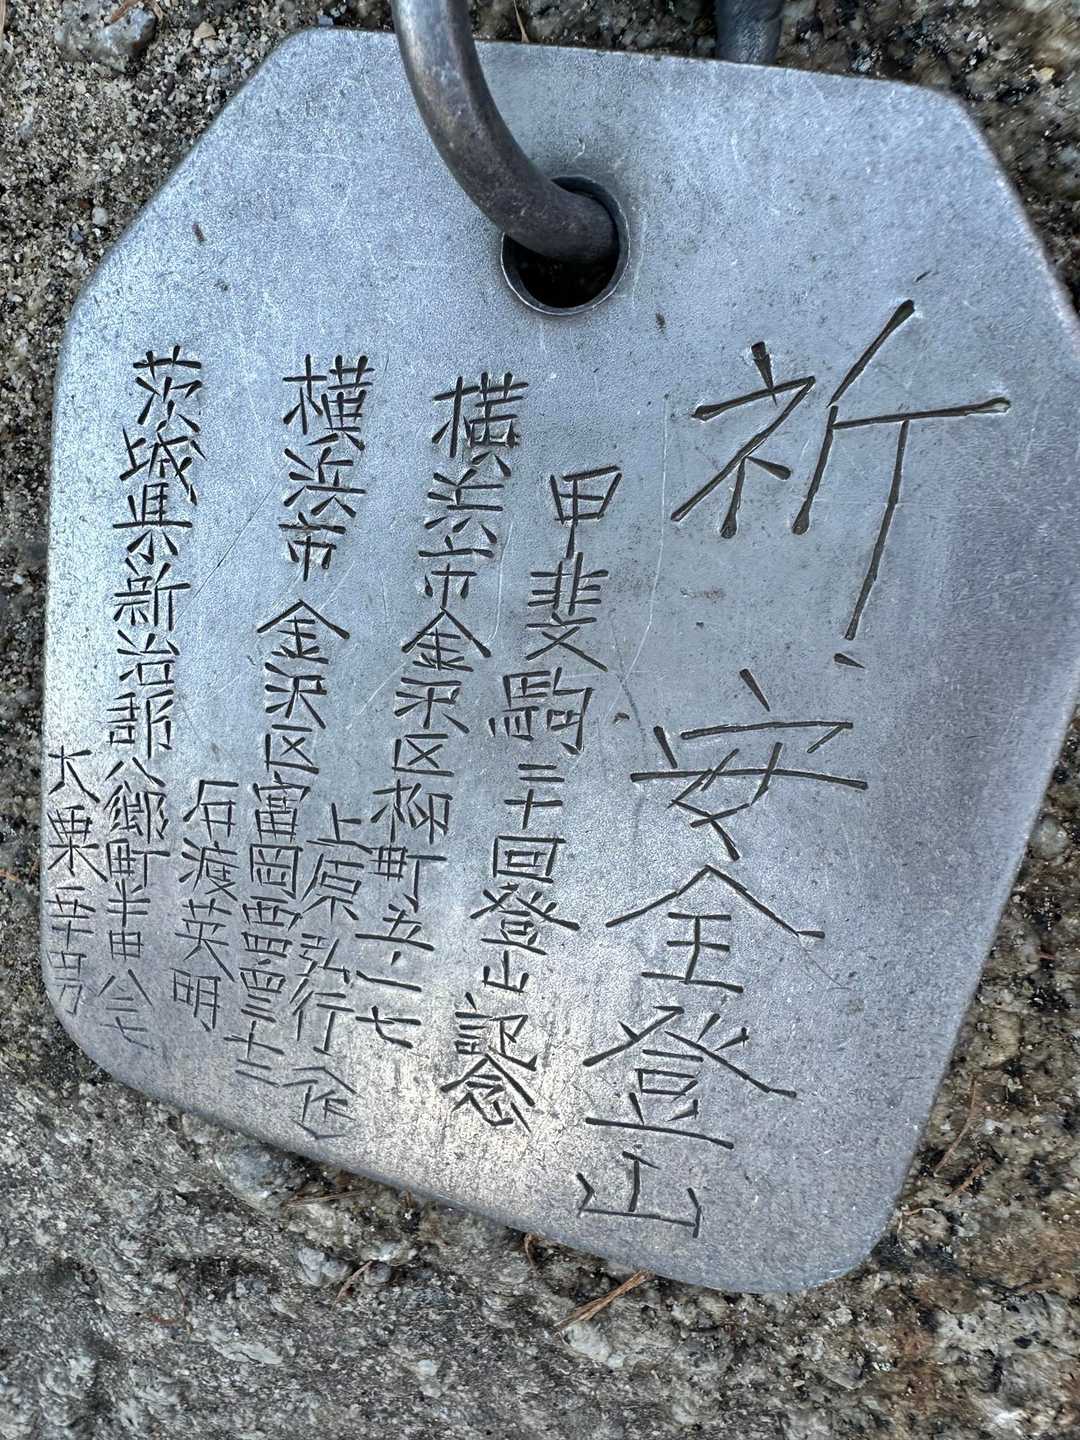 祈安全登山
甲斐駒二十回登山記念
横浜市金沢区柳町五ー七
上原弘行作
横浜市金沢区富岡西四ー三ー十二
石渡英明
茨城県新治郡八郷町半田
大栗